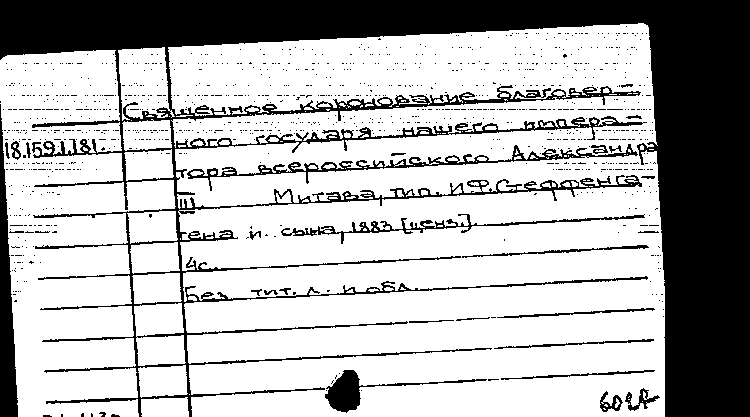 Священное коронование благовер-
18.159.1.181. ного государя нашего импера-
тора всероссийского Александра
III. Митава, тип. И.Ф.Стеффенга-
гена и сына, 1883 [ценз.].
4с.
Без тит. л. и обл.